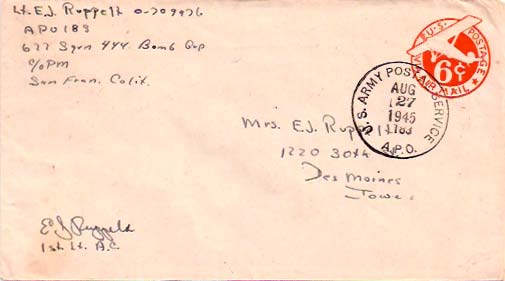 Lt. E.J. Ruppelt O-709976
APO 183
677 Sqrn 444 Bomb Grp
c/o PM
San Fran. Calif.
U.S. POSTAGE
6¢
VIA AIR MAIL
U.S. ARMY POSTAL SERVICE
AUG
27
1945
183
A.P.O.
Mrs. E.J. Ruppelt
1220 30th
Des Moines
Iowa
E J Ruppelt
1st Lt. A.C.